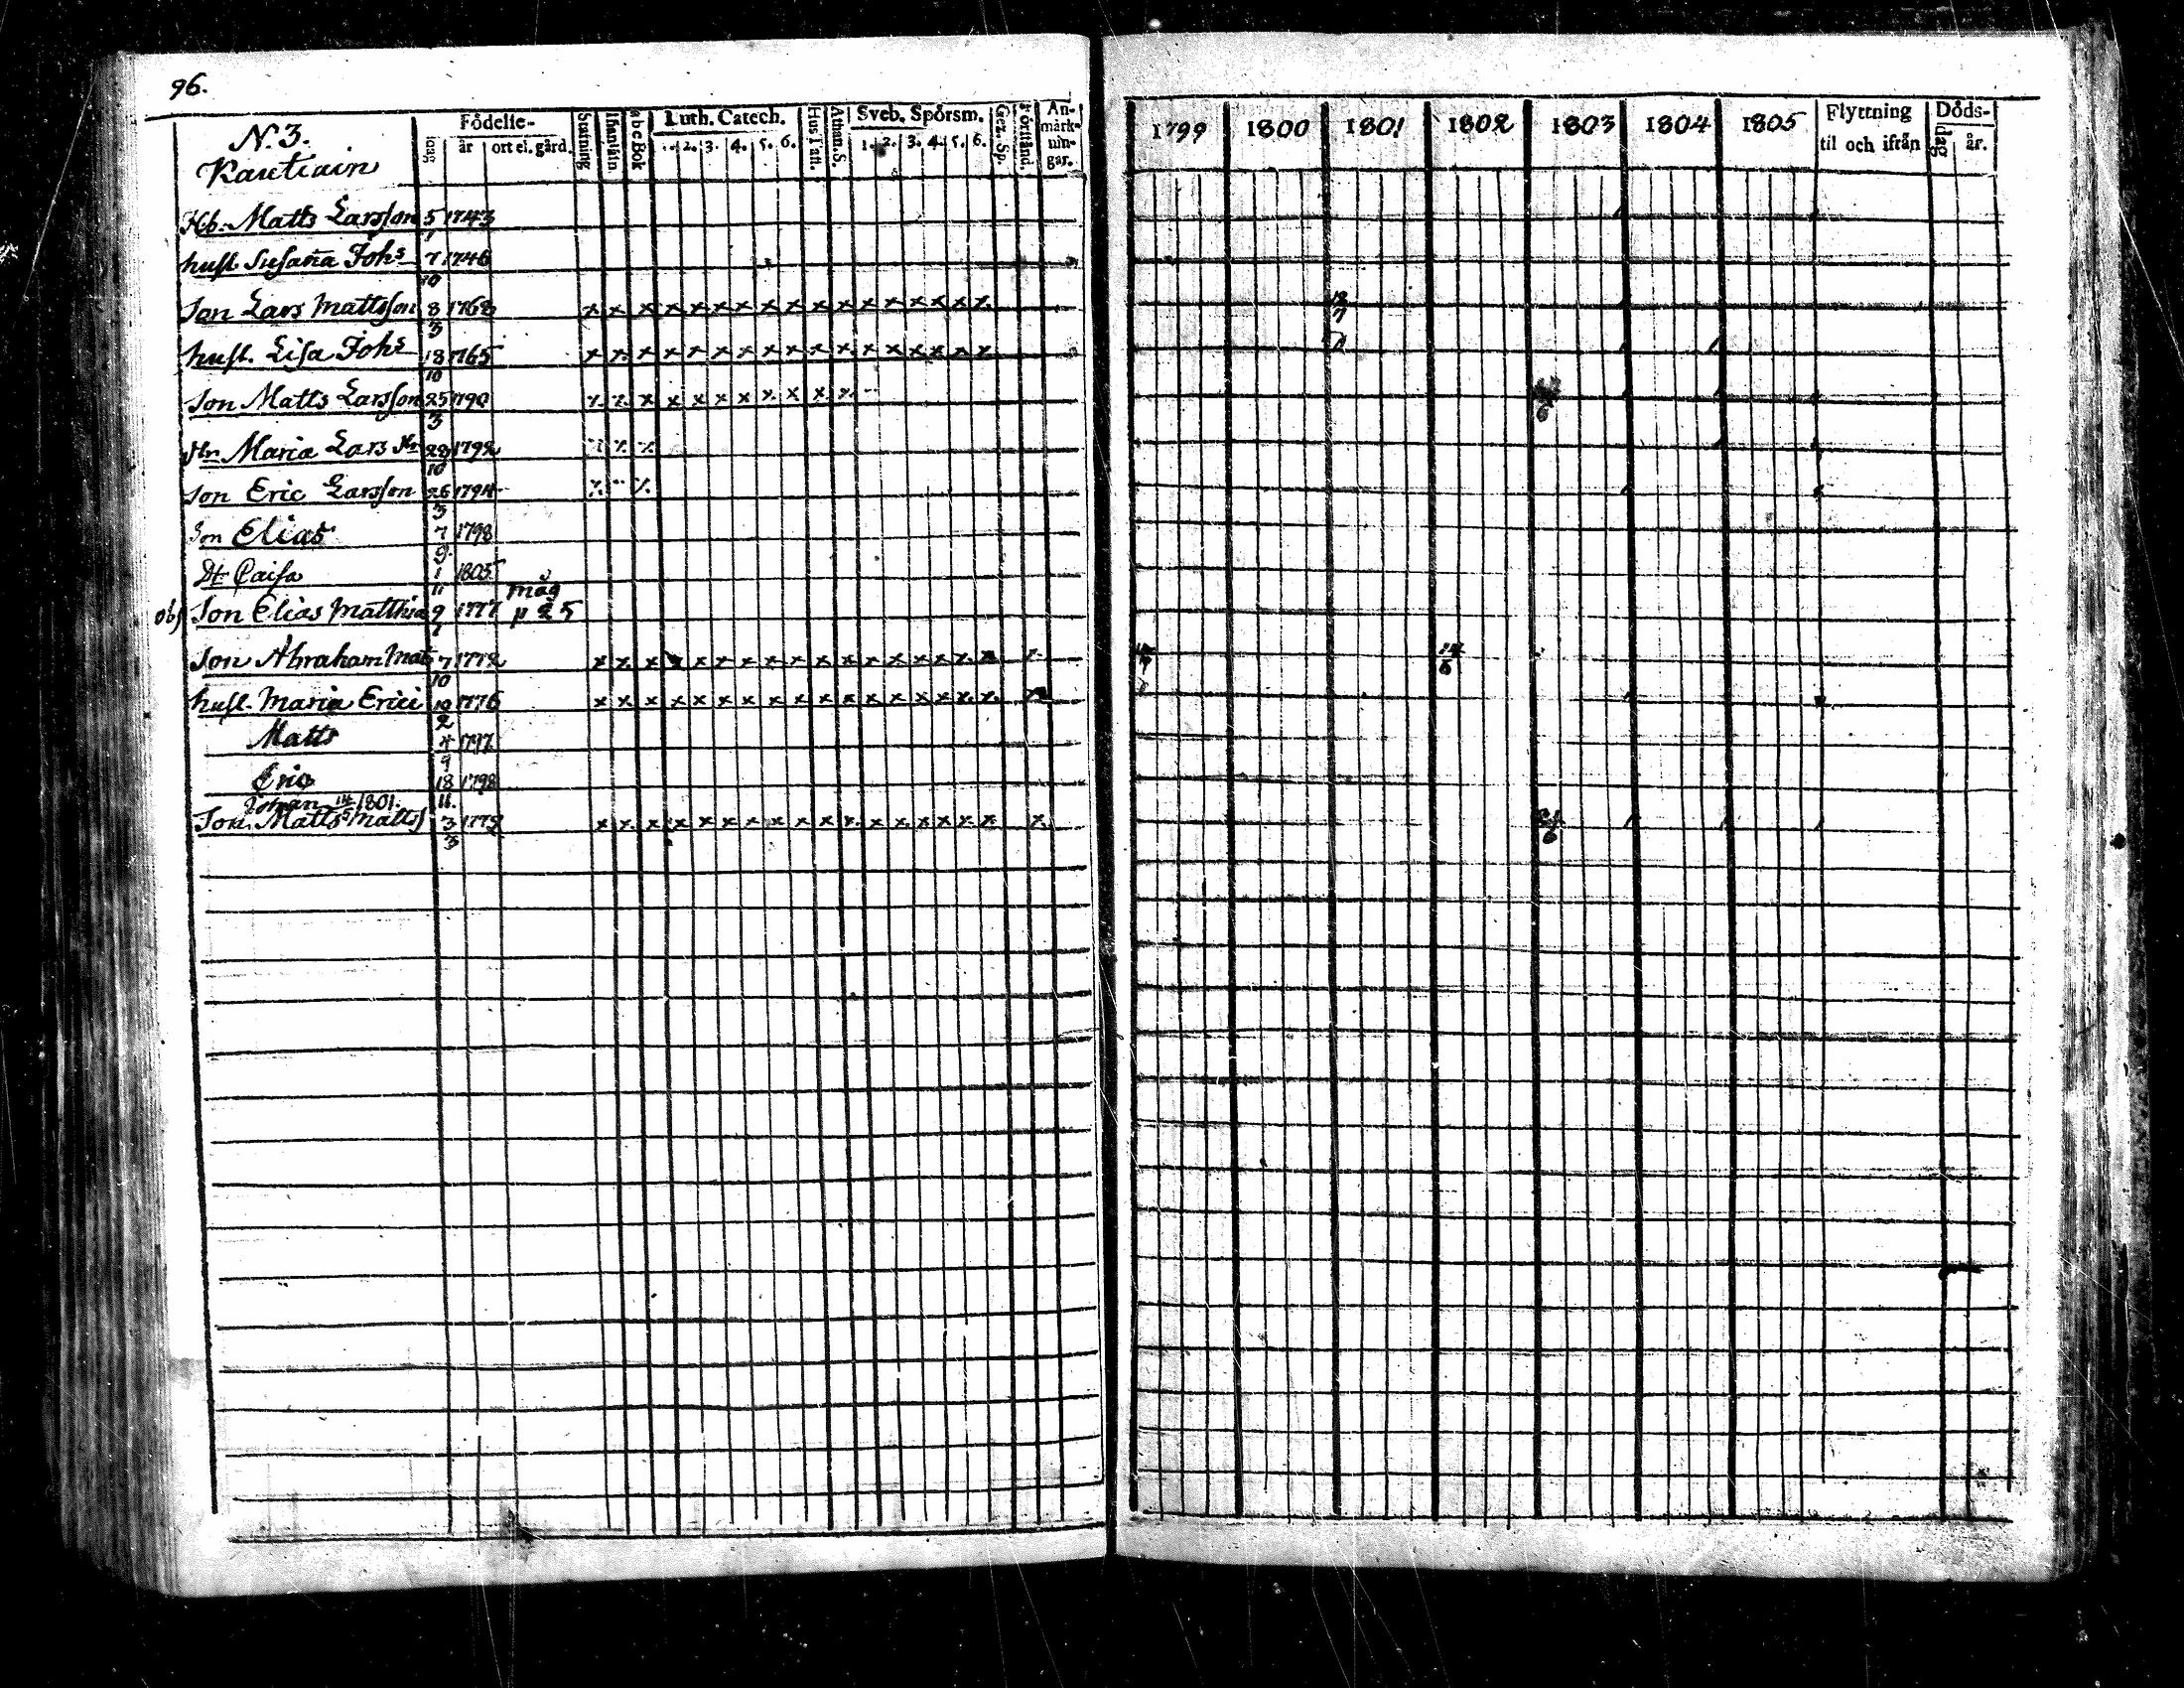 96.
N. 3.
Rautiain
Födelse-
dag
år
ort el. gård.
Stafning
Abc Bok
Luth. Catech.
2. 3. 4. 5. 6.
Hus Tafl.
Athan. S.
Sveb. Spörsm.
1. 2. 3. 4. 5. 6.
Gez. Sp.
Förstånd.
An-
märk-
nin-
gar.
1799 1800 1801 1802 1803 1804 1805
Flyttning
til och ifrån
Döds-
dag
år.
Hb. Matts Larsson 5 1743
1
hust. Susaña Johs 7 1746
10
Son Lars Mattsson 8 1768 x x x x x x x x x x x x x x x x x
3
hust. Lisa Johs 18 1765 x x x x x x x x x x x x x x x x x
10
Son Matts Larsson 25 1790 x x x x x x x x x x x
3
Dtr Maria Lars dr 28 1792
10
Son Eric Larsson 26 1794
3
Son Elias 7 1798
9
Dr Caisa 1 1805
11
obs Son Elias Matths 9 1777 måg
p 25
Son Abraham Mats 7 1772 x x x x x x x x x x x x x x x x x
10
hust. Maria Erici 12 1776 x x x x x x x x x x x x x x x x x
2
Matts 4 1797
9
Eric 18 1798
11.
Johan 14 1801.
Son Matts Matts 3 1779 x x x x x x x x x x x x x x x x x
3